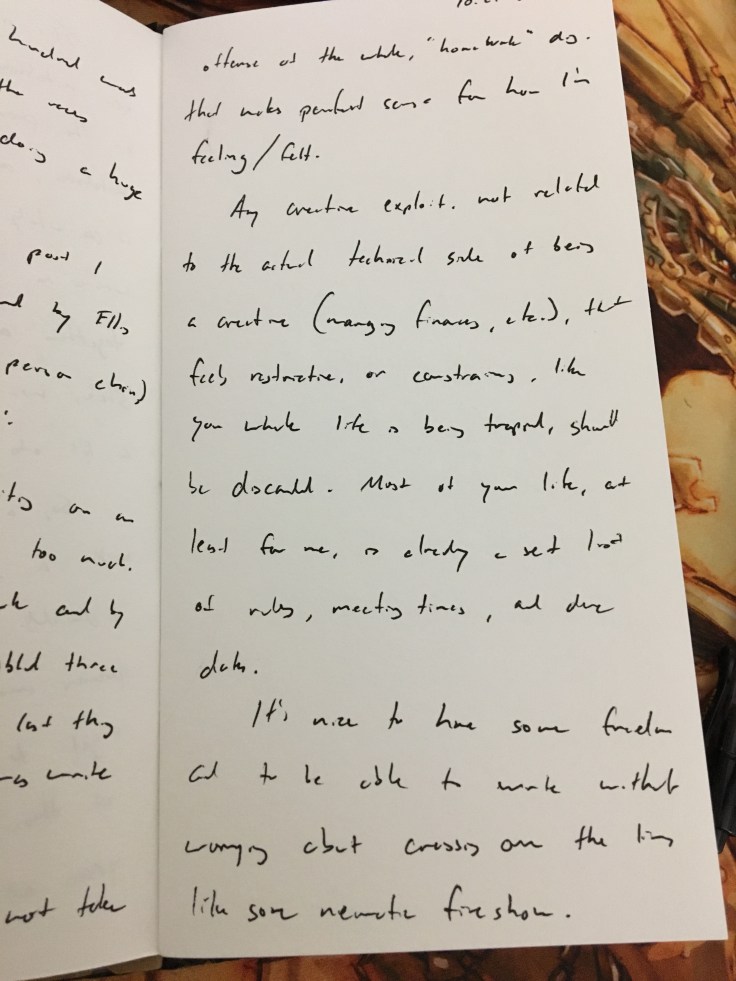 hundred
the
doing a huge
part 1
by Ellis
person
on an
too much.
and by
three
last thing
write
not take
10.
offense at the whole, "homework" dig.
that makes perfect sense for how I'm
feeling / felt.
Any creative exploit, not related
to the actual technical side of being
a creative (managing finances, etc.), that
feels restrictive, or constraining, like
your whole life is being trapped, should
be discarded. Most of your life, at
least for me, is already a set
of rules, meeting times, and due
dates.
It's nice to have some freedom
and to be able to work without
worrying about crossing over the lines
like some neurotic